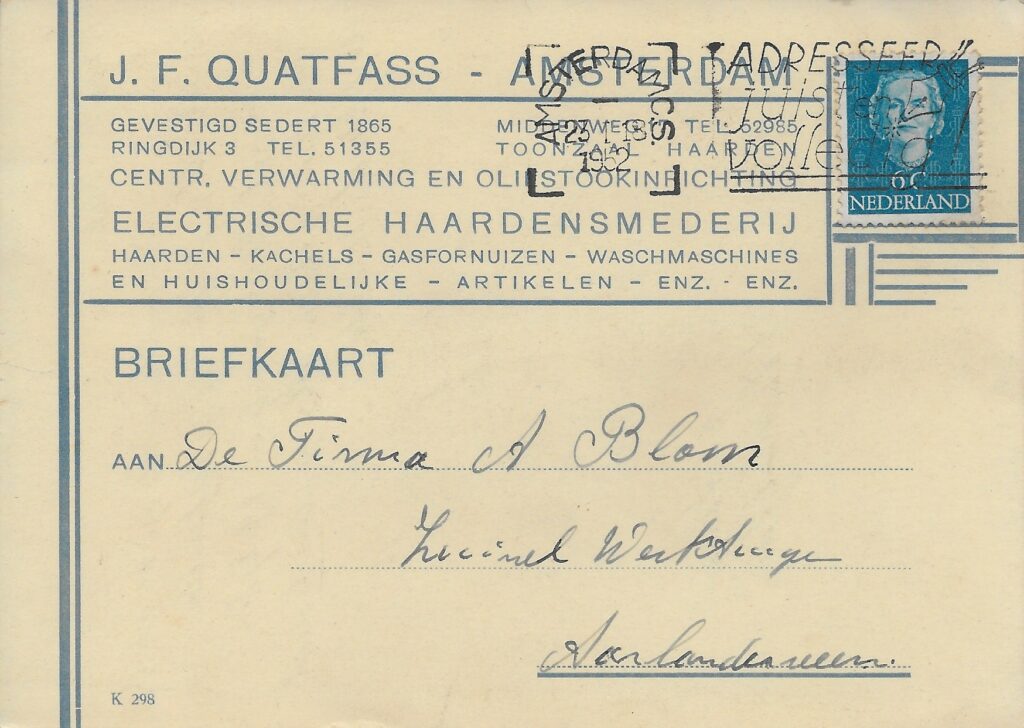 J. F. QUATFASS - AMSTERDAM
GEVESTIGD SEDERT 1865
RINGDIJK 3 TEL. 51355
TEL. 52985
TOONZAAL HAARDEN
CENTR. VERWARMING EN OLIESTOOKINRICHTING
ELECTRISCHE HAARDENSMEDERIJ
HAARDEN - KACHELS - GASFORNUIZEN - WASCHMASCHINES
EN HUISHOUDELIJKE - ARTIKELEN - ENZ. - ENZ.
AMSTERDAM C.S.
23 I 18
1952
ADRESSEER
juist en
volledig
6c
NEDERLAND
BRIEFKAART
AAN De Firma A Blom
Werktuigen
Aarlanderveen.
K 298